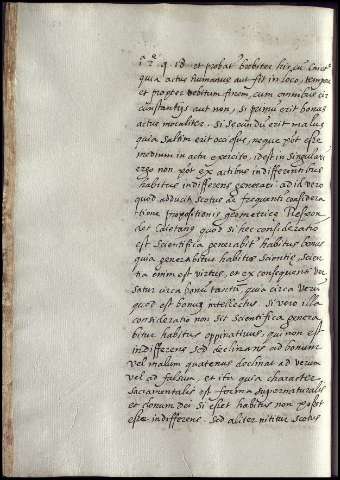 1ª 2ª q. 18. et probat breviter hic, cū Caiet.
quia actus humanus aut fit in loco, tempore
et propter debitum finem, cum omnibus cir
cunstantijs aut non, si primū erit bonus
actus moraliter. si secūdū erit malus
quia saltim erit occiosus, neque pōt esse
medium in actu exercito, idest in singulari
ergo non pōt ex actibus indifferentibus
habitus indifferens generari. ad id vero
quod adducit scotus de frequenti considera
tione propositionis geometricę Respon
det Caietanꝰ quod si hęc consideratio
est scientifica generabit habitus bonus
quia generabitur habitus scientię, scien
tia enim est virtus, et ex consequenti ver
satur circa bonū tantū, quia circa verū
quod est bonū intellectus. si vero illa
consideratio non sit scientifica genera
bitur habitus oppinativus, qui non est
indifferens sed declinans ad bonum
vel malum quatenus declinat ad verum
vel ad falsum. et ita quia character
sacramentalis est forma supernaturalis
et donum dei si esset habitus non posset
esse indifferens. sed aliter nititur scotus